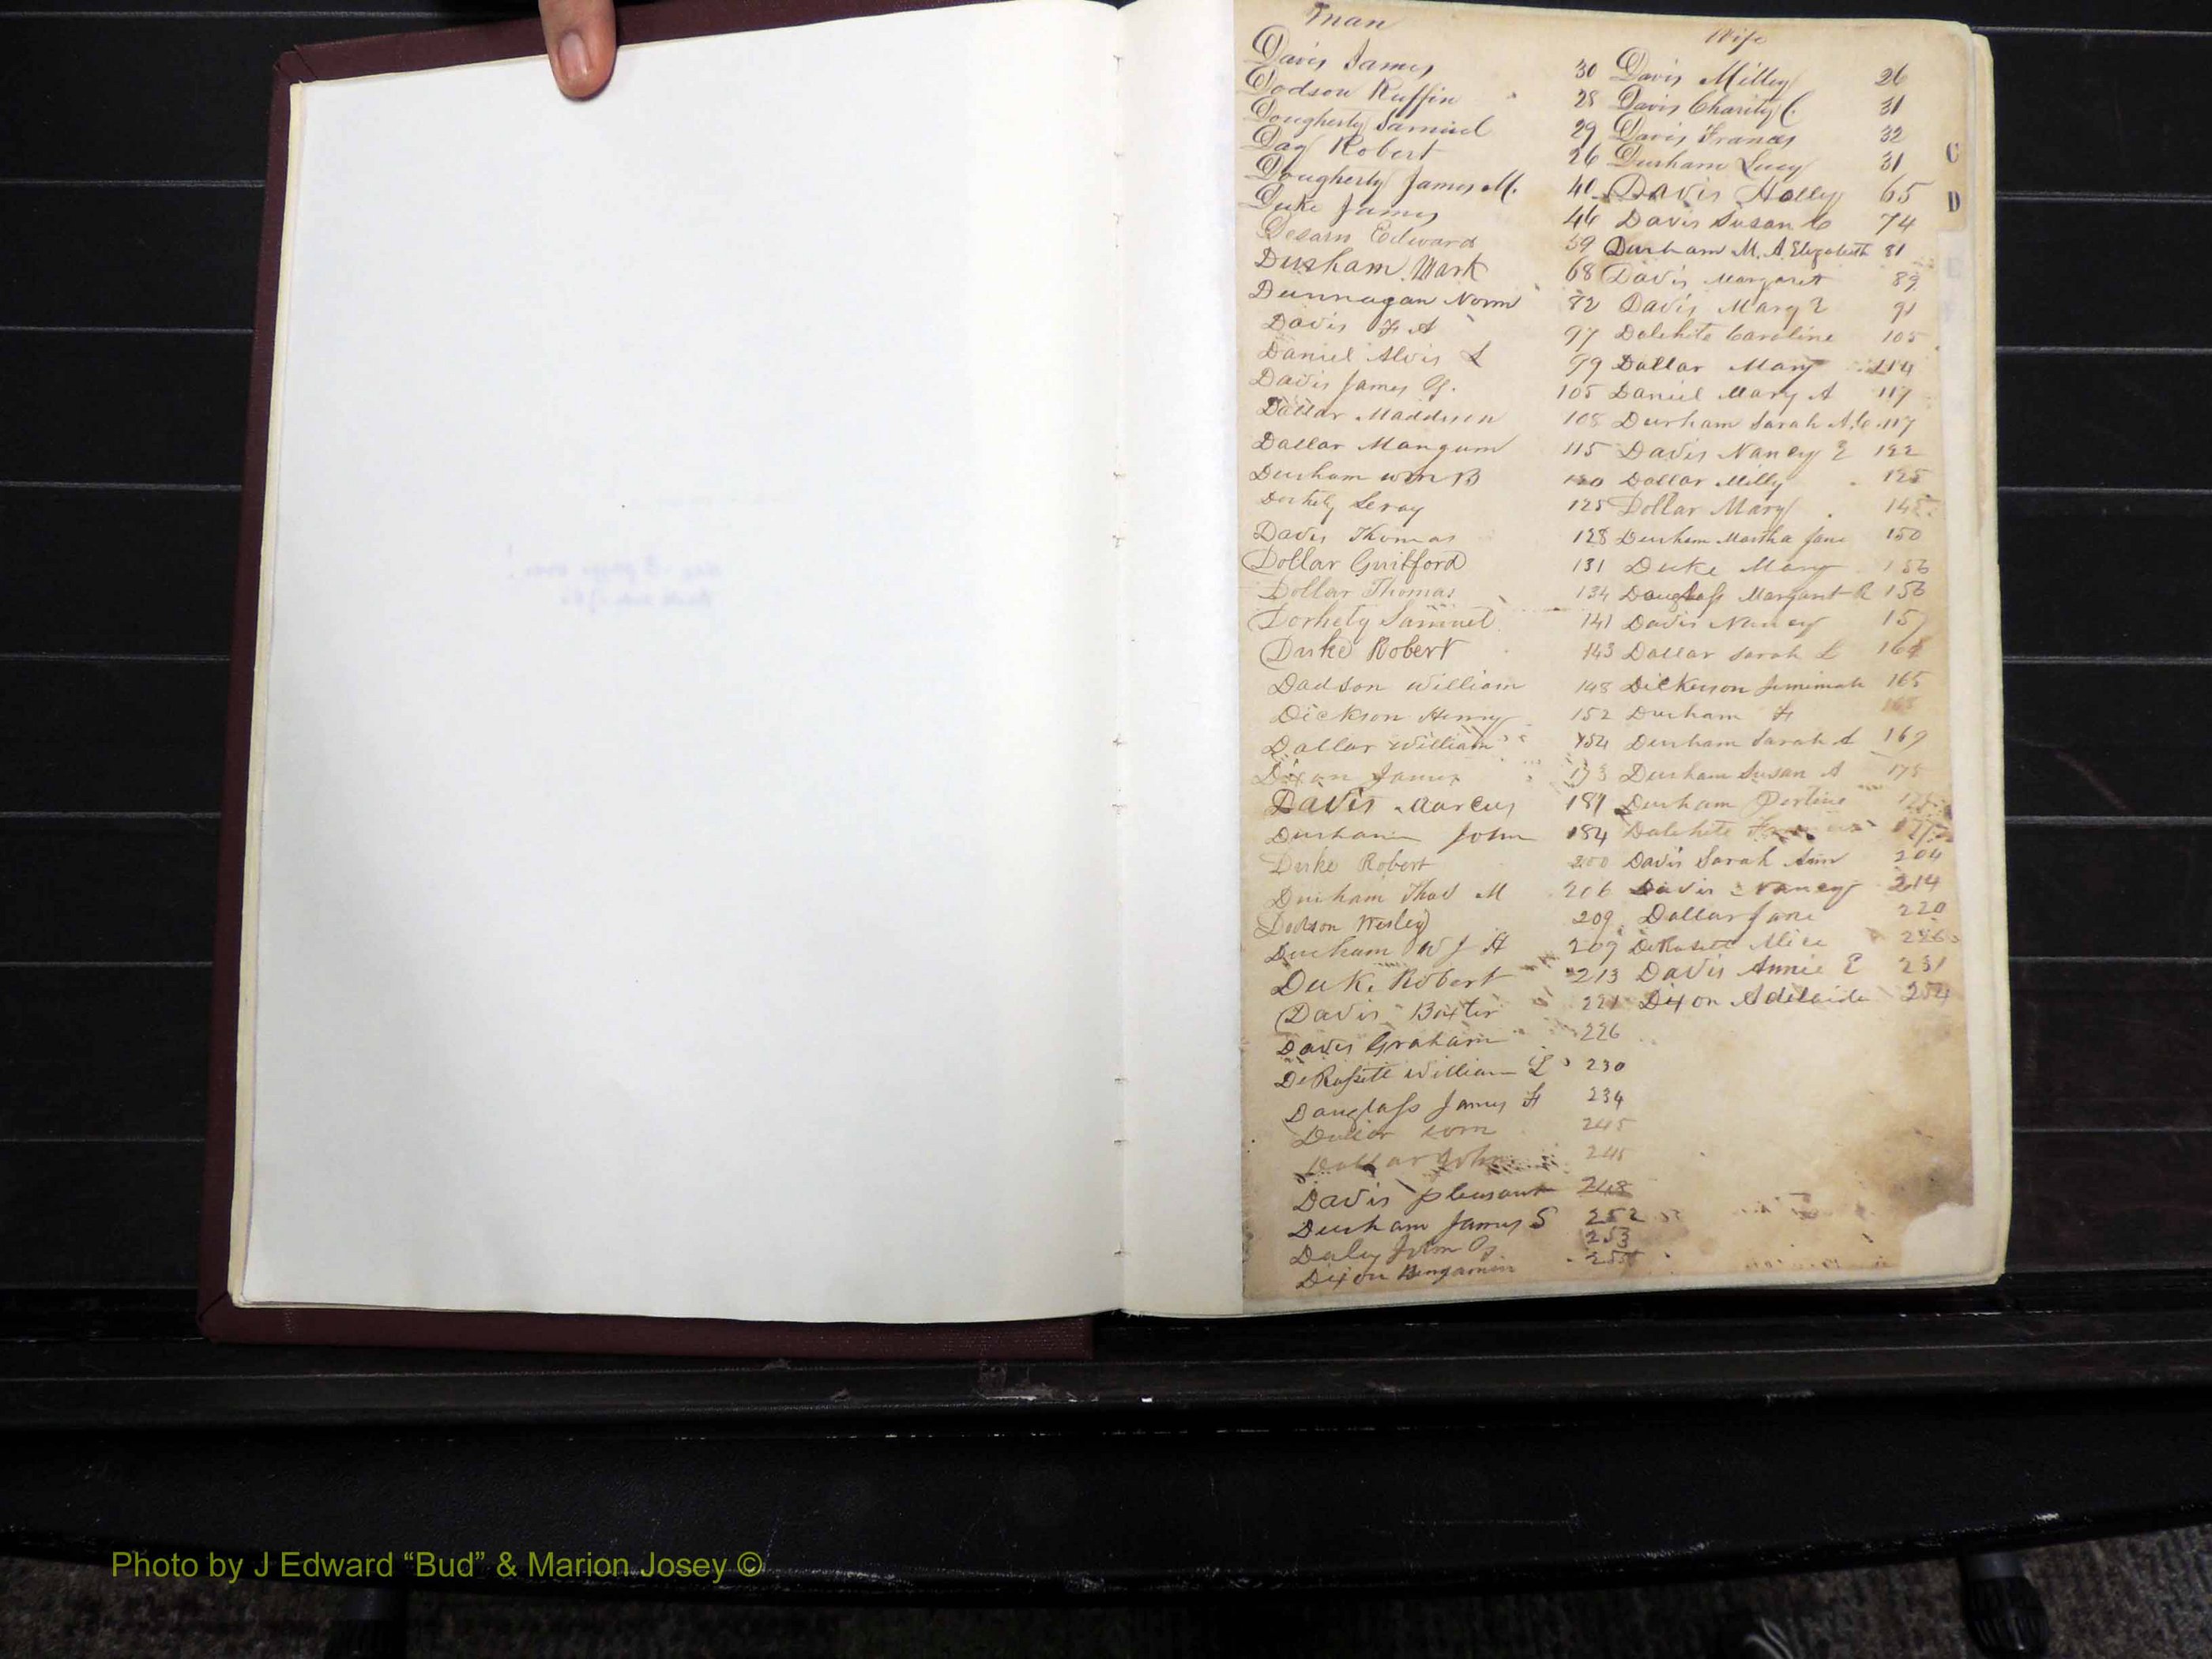 Man Wife
Davis James 30 Davis Milley 26
Dodson Ruffin 28 Davis Charity C. 31
Dougherty Samuel 29 Davis Frances 32
Day Robert 26 Durham Lucy 31
Dougherty James M. 40 Davis Holley 65
Duke James 46 Davis Susan C 74
Edward 59 Durham M. A. Elizabeth 81
Durham Mark 68 Davis Margaret
Dunnagan Norm 82 Davis Mary E 91
Davis F A 97 Dolehite Caroline 105
Daniel Alvis L 99 Dollar Mary 114
Davis James G. 105 Daniel Mary A 117
Dollar Maddison 108 Durham Sarah A. C. 117
Dollar Mangum 115 Davis Nancy E 122
Durham Wm B 120 Dollar Milly 125
Leroy 125 Dollar Mary
Davis Thomas 128 Durham Martha Jane 150
Dollar Guilford 131 Duke Mary 156
Dollar Thomas 134 Douglass Margaret R 156
Dorhety Samuel 141 Davis Nancy
Duke Robert 143 Dollar Sarah L
Dodson William 148 Dickerson Jemimah 165
Dickson Henry 152 Durham F
Dollar William 154 Durham Sarah A 169
Dixon James 173 Durham Susan A 175
Davis Marcus 184 Durham
Durham John 184 Dolehite
Duke Robert 200 Davis Sarah Ann 204
Durham Thad M 206 Davis Nancy 214
Dodson Wesley 209 Dollar Jane 220
Durham W J H 209 DeRosett Alice
Duke Robert 213 Davis Annie E 231
Davis Baxter 221 Dixon Adelaide 254
Davis Graham 226
DeRossett William L 230
Douglass James H 234
245
Dollar John 245
Davis Pleasant 248
Durham James S 252
Daley John G. 253
Dixon Bengamin
C
D
Photo by J Edward “Bud” & Marion Josey ©